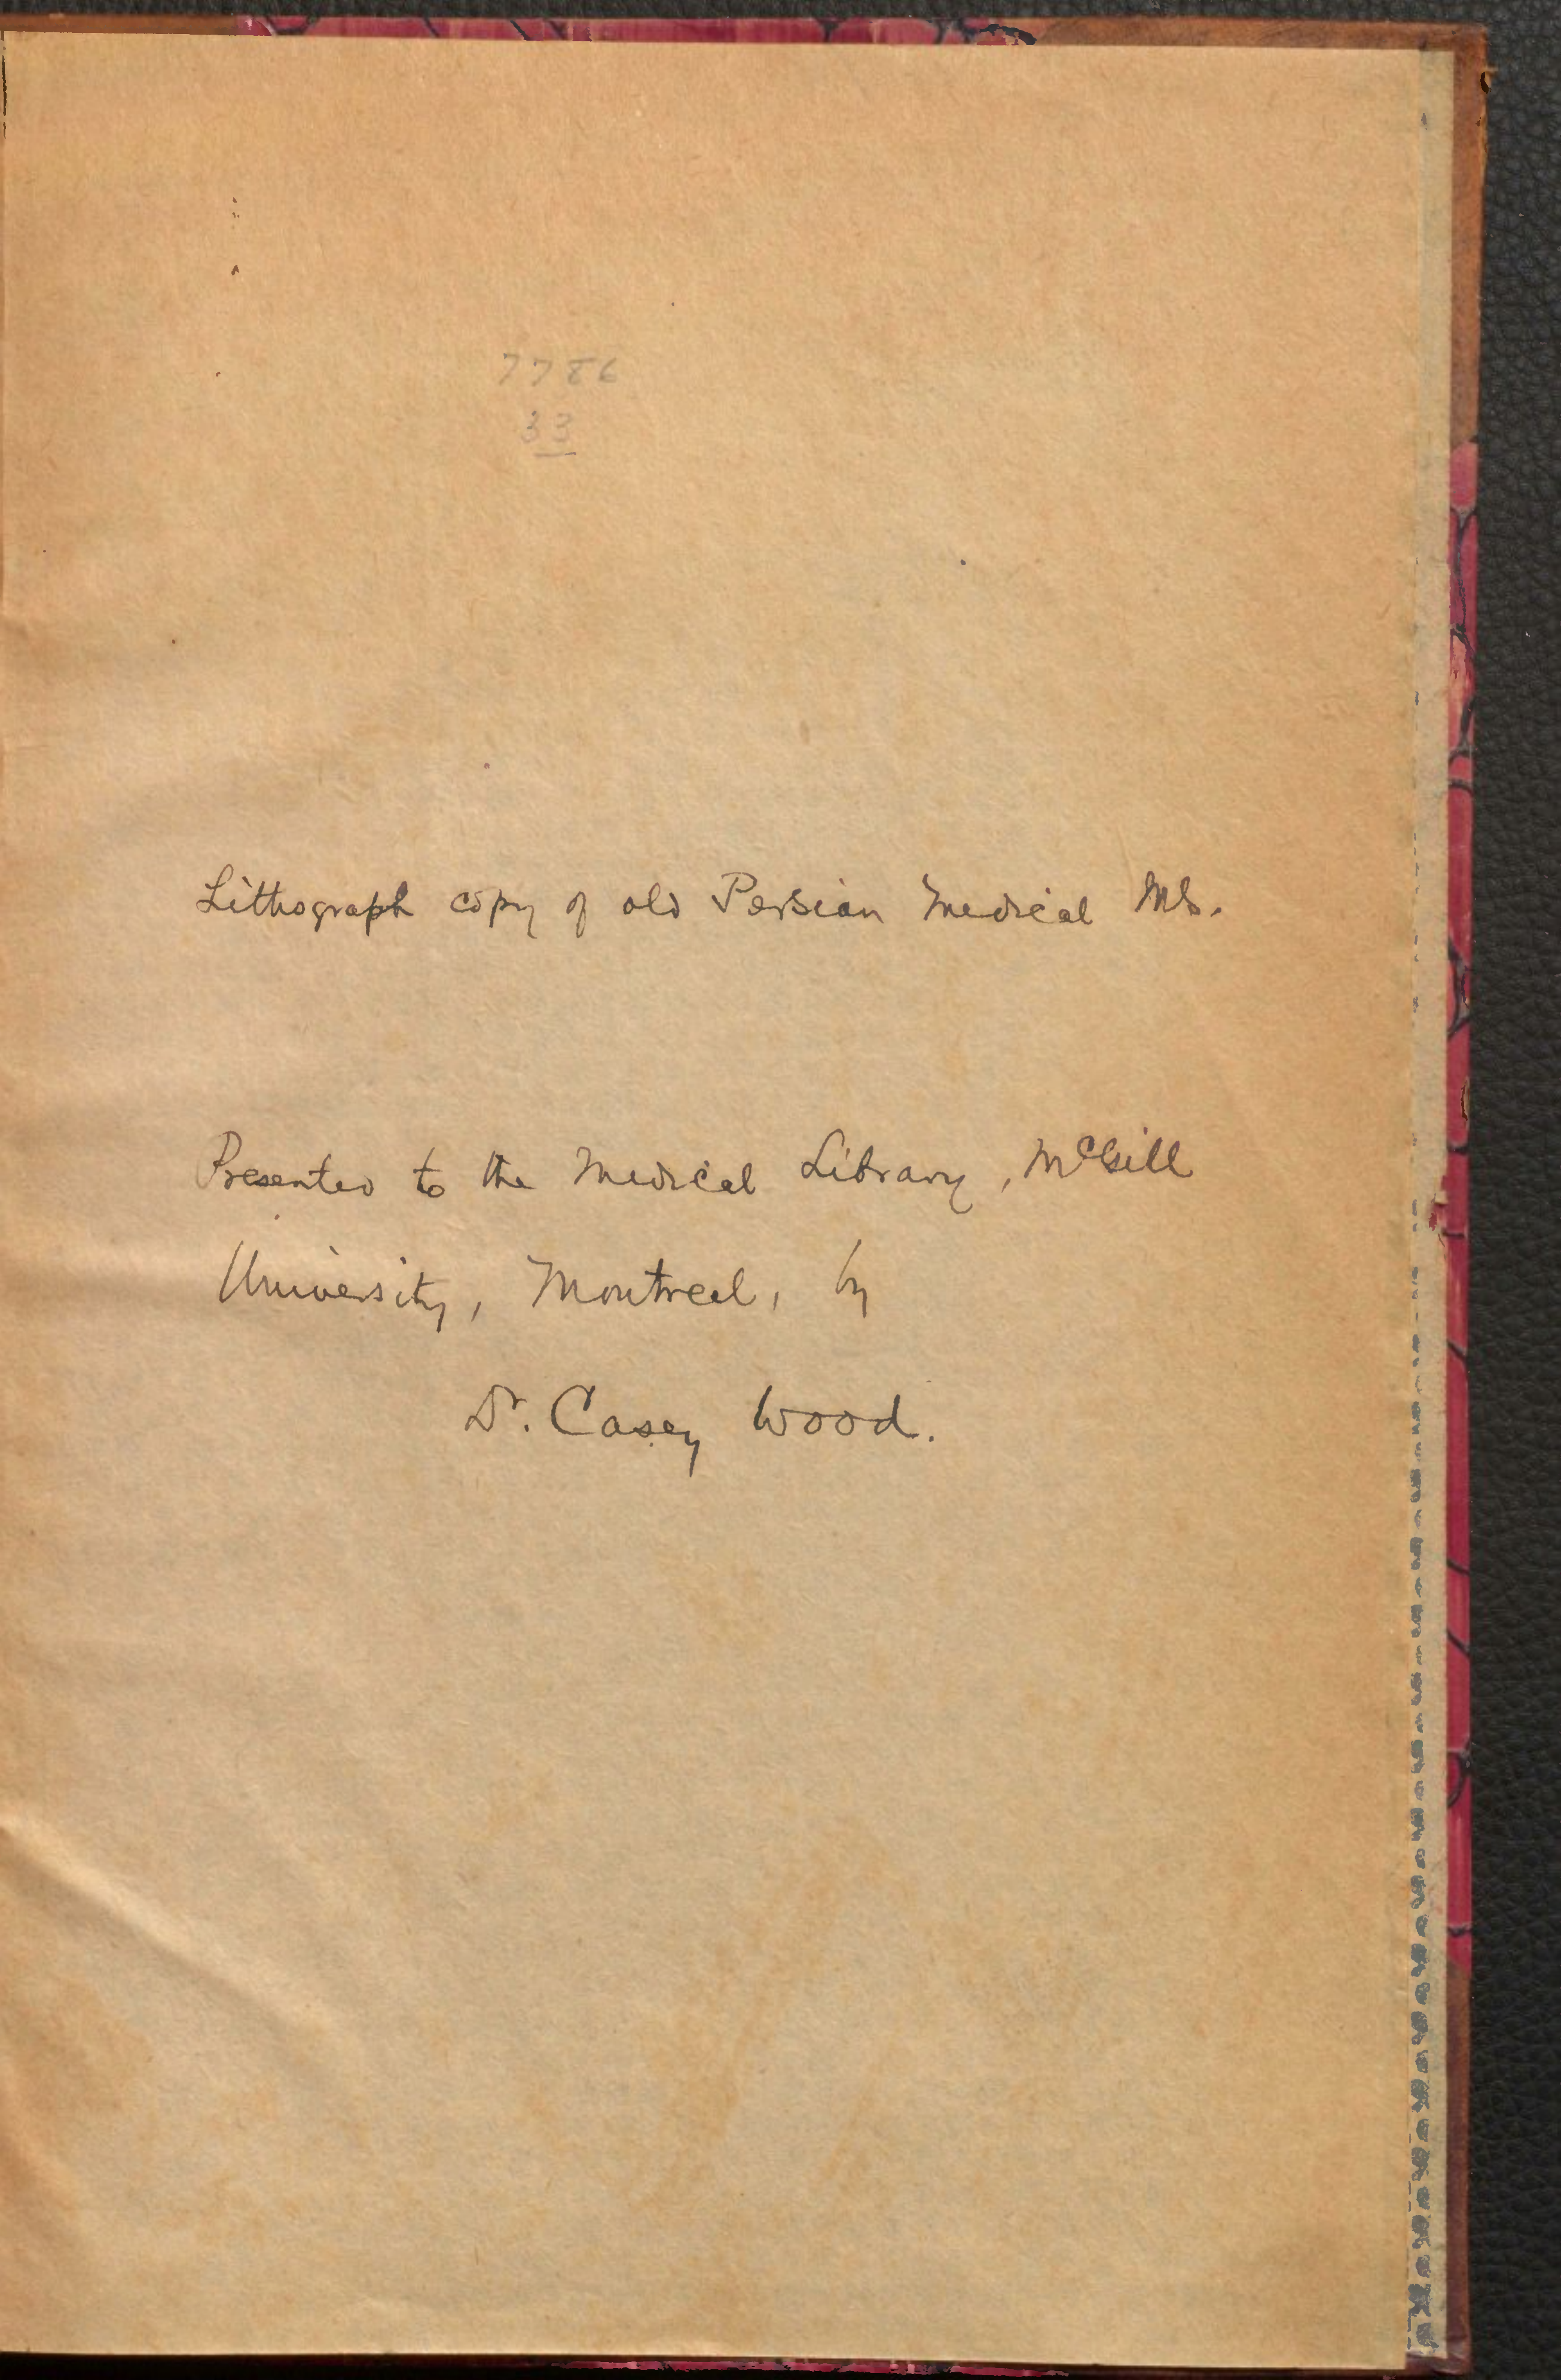 7786
33
Lithograph copy of old Persian Medical Ms.
Presented to the Medical Library, McGill
University, Montreal, by
Dr. Casey Wood.